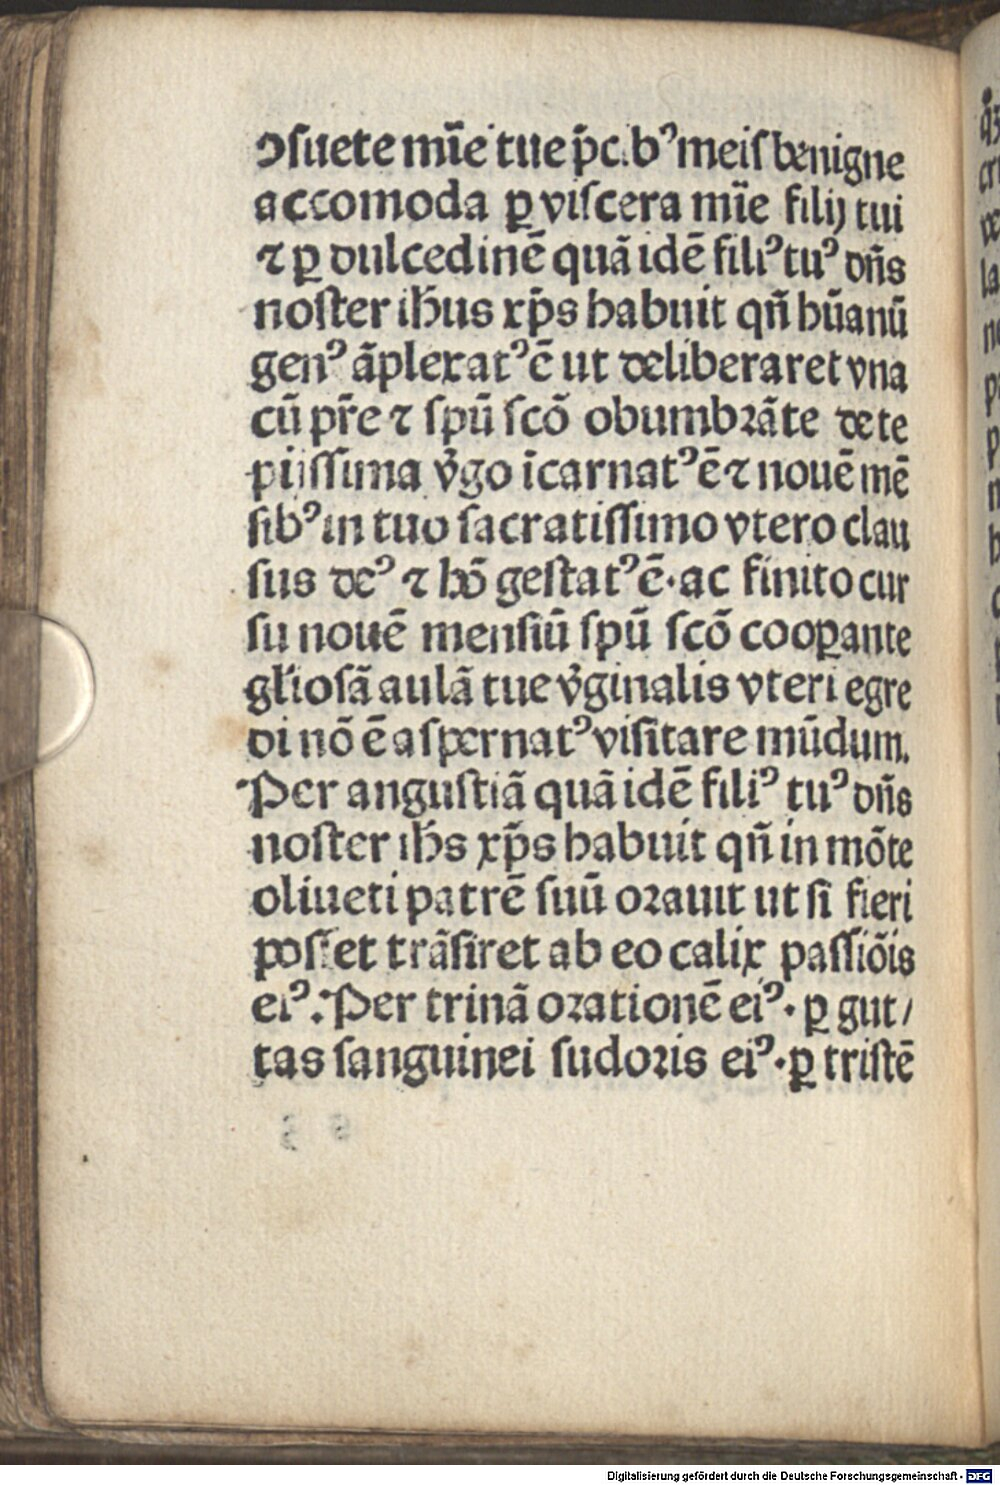 ↄſuete mīe tue p̄c.bꝰ meiſ benigne
accomoda ꝑ viſcera mīe filij tui
⁊ ꝑ dulcedinē quā idē filiꝰ tuꝰ dn̄s
noſter ih̄us xp̄s habuit qn̄ hūanū
genꝰ āplexatꝰ ē ut deliberaret vna
cū pr̄e ⁊ ſpū ſcō obumbꝛāte de te
pijſſima v̄go īcarnatꝰ ē ⁊ nouē mē
ſibꝰ in tuo ſacratiſſimo vtero clau
sus deꝰ ⁊ hō geſtatꝰ ē · ac finito cur
ſu nouē menſiū ſpū ſcō cooꝑante
gl̄ioſā aulā tue v̄ginalis vteri egre
di nō ē aſpernatꝰ viſitare mūdum.
Per anguſtiā quā idē filiꝰ tuꝰ dn̄s
noſter ih̄s xp̄s habuit qn̄ in mōte
oliueti patrē ſuū oꝛauit ut ſi fieri
poſſet trāſiret ab eo calix paſſiōis
eiꝰ. Per trinā oꝛationē eiꝰ · ꝑ gut/
tas ſanguinei ſudoꝛis eiꝰ · ꝑ triſtē
Digitalisierung gefördert durch die Deutsche Forschungsgemeinschaft - DFG